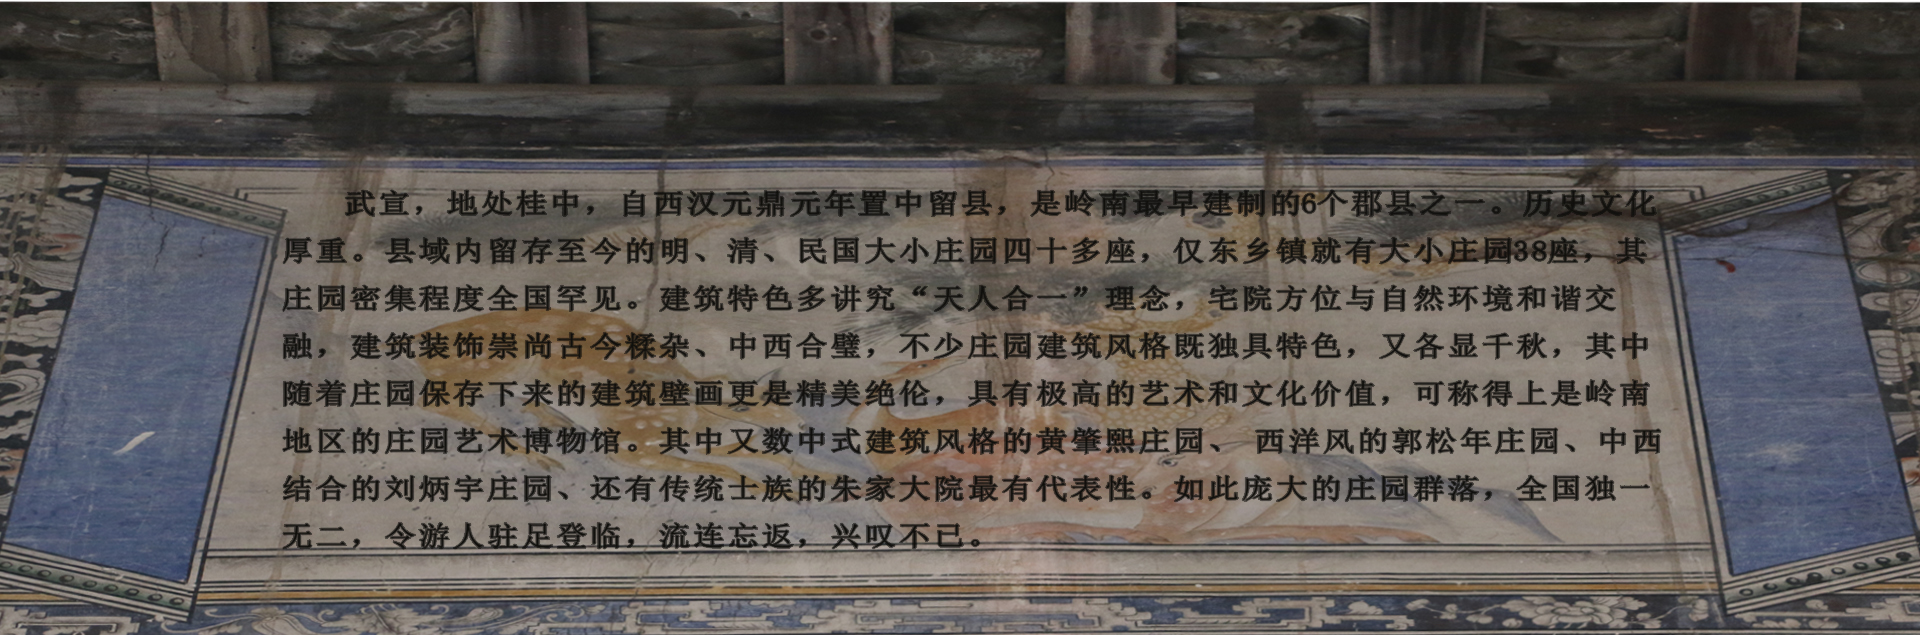 武宣，地处桂中，自西汉元鼎元年置中留县，是岭南最早建制的6个郡县之一。历史文化
厚重。县域内留存至今的明、清、民国大小庄园四十多座，仅东乡镇就有大小庄园38座，其
庄园密集程度全国罕见。建筑特色多讲究“天人合一”理念，宅院方位与自然环境和谐交
融，建筑装饰崇尚古今糅杂、中西合璧，不少庄园建筑风格既独具特色，又各显千秋，其中
随着庄园保存下来的建筑壁画更是精美绝伦，具有极高的艺术和文化价值，可称得上是岭南
地区的庄园艺术博物馆。其中又数中式建筑风格的黄肇熙庄园、 西洋风的郭松年庄园、中西
结合的刘炳宇庄园、还有传统士族的朱家大院最有代表性。如此庞大的庄园群落，全国独一
无二，令游人驻足登临，流连忘返，兴叹不已。